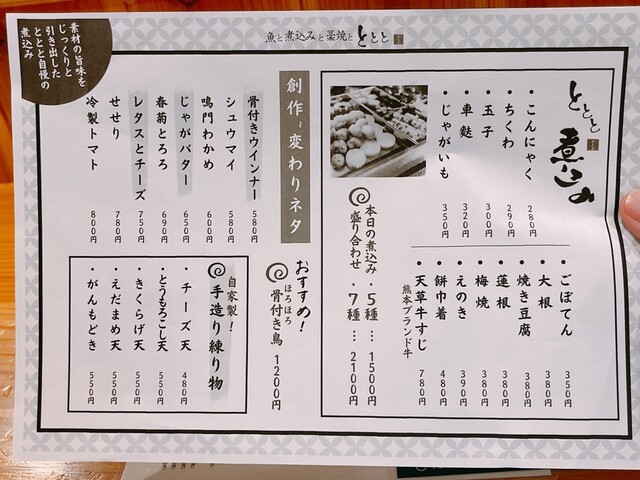 魚と煮込みと藁焼と ととと
素材の旨味を
じっくりと
引き出した
ととと自慢の
煮込み
ととと 煮込み
・こんにゃく 280円
・ちくわ 290円
・玉子 300円
・車麩 320円
・じゃがいも 350円
・ごぼてん 350円
・大根 380円
・焼き豆腐 380円
・蓮根 380円
・梅焼 380円
・えのき 390円
・餅巾着 480円
・天草牛すじ 780円
熊本ブランド牛
本日の煮込み
盛り合わせ
・5種… 1500円
・7種… 2100円
おすすめ!
ほろほろ
骨付き鳥 1200円
創作~変わりネタ
骨付きウインナー 580円
シュウマイ 580円
鳴門わかめ 600円
じゃがバター 650円
春菊とろろ 690円
レタスとチーズ 750円
せせり 780円
冷製トマト 800円
自家製!
手造り練り物
・チーズ天 480円
・とうもろこし天 550円
・きくらげ天 550円
・えだまめ天 550円
・がんもどき 550円